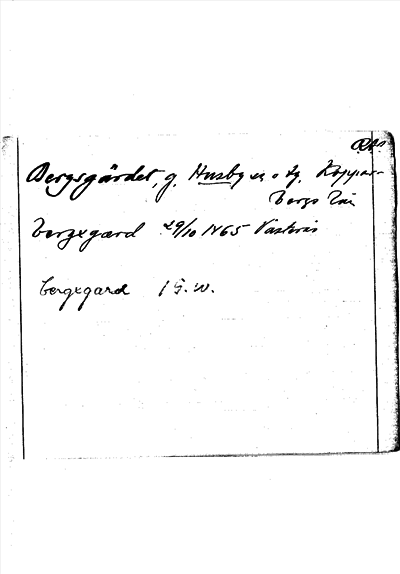 RA
Bergsgärdet, g. Husby sn o tg. Koppar-
bergs län
bergxgærd 29/10 1465 Västerås
bergxgard i G. w.